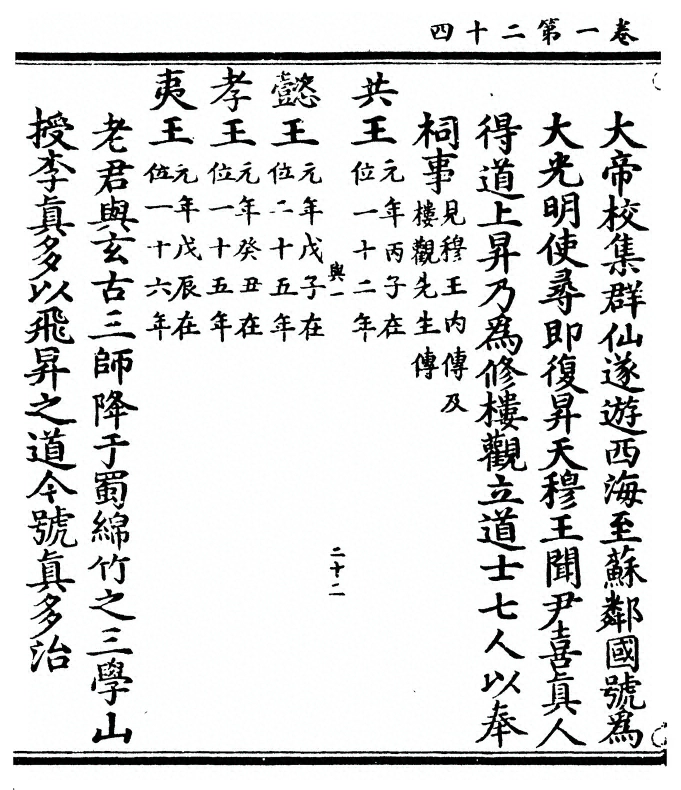 卷一第二十四
大帝校集群仙遂遊西海至蘇鄰國號爲
大光明使尋即復昇天穆王聞尹喜眞人
得道上昇乃爲修樓觀立道士七人以奉
祠事見穆王内傳及
樓觀先生傳
共王元年丙子在
位一十二年
與一
二十二
懿王元年戊子在
位二十五年
孝王元年癸丑在
位一十五年
夷王元年戊辰在
位一十六年
老君與玄古三師降于蜀綿竹之三學山
授李眞多以飛昇之道今號眞多治